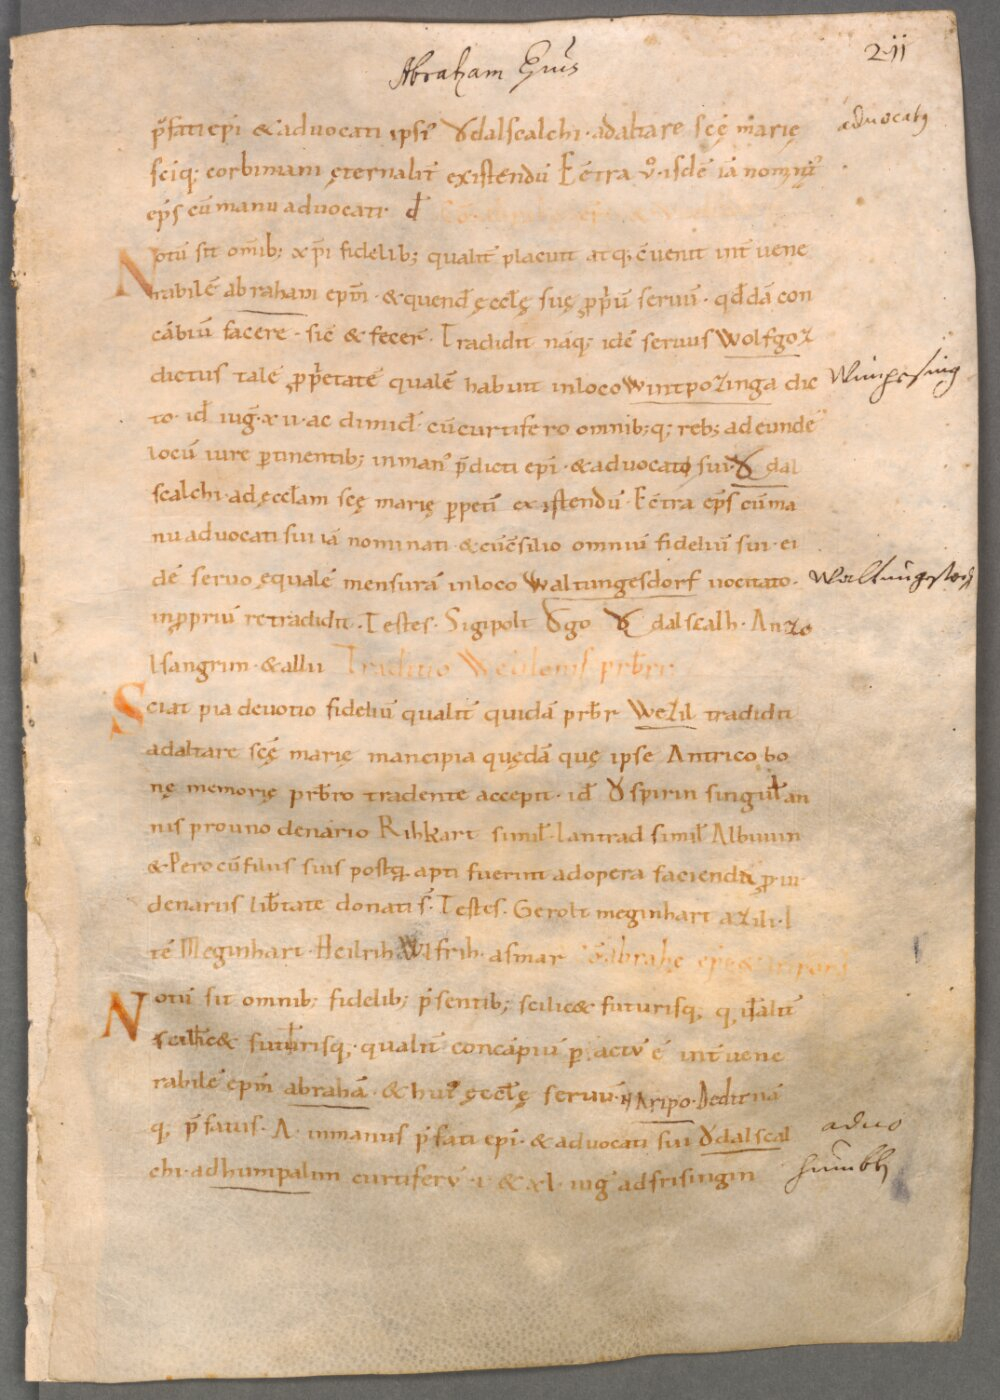 Abraham Epus
2·ii
p̄fati epi & advocati ipsiꝰ Ʊdalscalchi · ad altare scę marię
advocatꝰ
sciq; corbiniani ęternalit̄ existendū E c̄tra v̊ isdē iā nominatꝰ
ep̄s cū manu advocati · đ
Notū sit om̄ib; xp̄i fidelib; qualit̄ placuit atq; c̄venit int̄ vene
rabilē abraham ep̄m · & quend̄ ęccłę suę ꝓp̄ū servū · qd̄dā con
cābiū facere · sic & fecer̄ · Tradidit náq; idē servus Wolfgoz
dictus talē ꝓp̄etatē qualē habuit in loco Wintpozinga dic
Wimpesing
to · id̄ iuḡ · xvii · ac dimid̄ · cū curtifero omnib;q; reb; ad eundē
locū iure ꝑtinentib; in manꝰ p̄dicti epi · & advocati sui · Ʊdal
scalchi · ad ęccłam scę marię ꝑpetī existendū · E c̄tra ep̄s cū ma
nu advocati sui iā nominati · & cū c̄silio omniū fideliū sui · ei
dē servo ęqualē mensurā in loco Waltungesdorf vocitato ·
in ꝓpriū retradidit · Testes · Sigipolt Ʊgo Ʊdalscalh · Anzo
Isangrim · & alii Traditio Wezilonis prb̄ri
Sciat pia devotio fideliū qualit̄ quidā prb̄r Wezil tradidit
ad altare scę marię mancipia quędā quę ipse Antrico bo
nę memorię prb̄ro tradente accepit · id̄ Ʊspirin singuł an
nis pro uno denario Rihkart simił · Lantrad simił Albuuin
& Pero cū filiis suis postq̄ apti fuerint ad opera faciendā ꝓ iii
denariis lib̄tate donati s̄ · Testes · Gerolt meginhart azili · I
tē Meginhart · Heilrih Wlfrih · asmar
Notū sit omnib; fidelib; p̄sentib; scilic& futurisq;
scilic& futurisq; · qualit̄ concāpiū ꝑactū ē int̄ vene
rabilē ep̄m abrahā · & huiꝰ ęccłę servū · Aripo · Dedit ná
q; p̄fatus · A · in manus p̄fati epi · & advocati sui Ʊdalscal
advo
chi · ad humpalun curtiferū · i · & xl · iuḡ ad frisingin